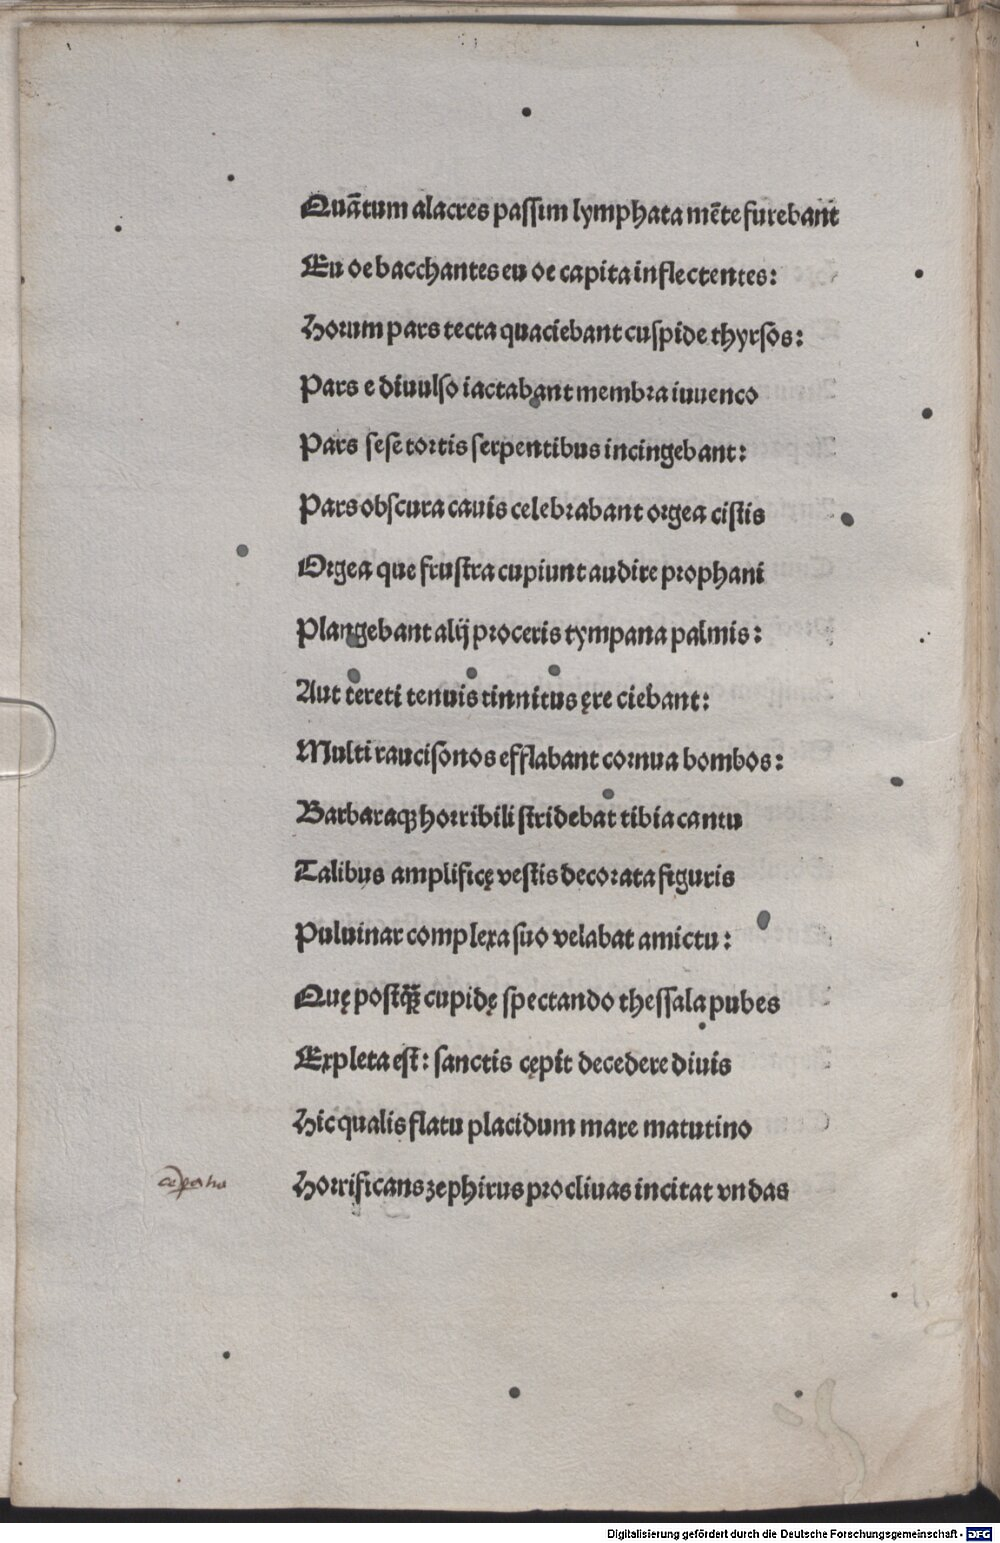 Quātum alacres passim lymphata mēte furebant
Eu oe bacchantes eu oe capita inflectentes:
Horum pars tecta quaciebant cuspide thyrsos:
Pars e divulso iactabant membra iuuenco
Pars sese tortis serpentibus incingebant:
Pars obscura cauis celebrabant orgea cistis
Orgea que frustra cupiunt audire prophani
Plangebant alij proceris tympana palmis:
Aut tereti tenuis tinnitus ęre ciebant:
Multi raucisonos efflabant cornua bombos:
Barbaraqꝫ horribili stridebat tibia cantu
Talibus amplificę vestis decorata figuris
Puluinar complexa suo velabat amictu:
Quę postꝗ̃ cupidę spectando thessala pubes
Expleta est: sanctis cępit decedere diuis
Hic qualis flatu placidum mare matutino
Horrificans zephirus procliuas incitat vndas
Digitalisierung gefördert durch die Deutsche Forschungsgemeinschaft - DFG